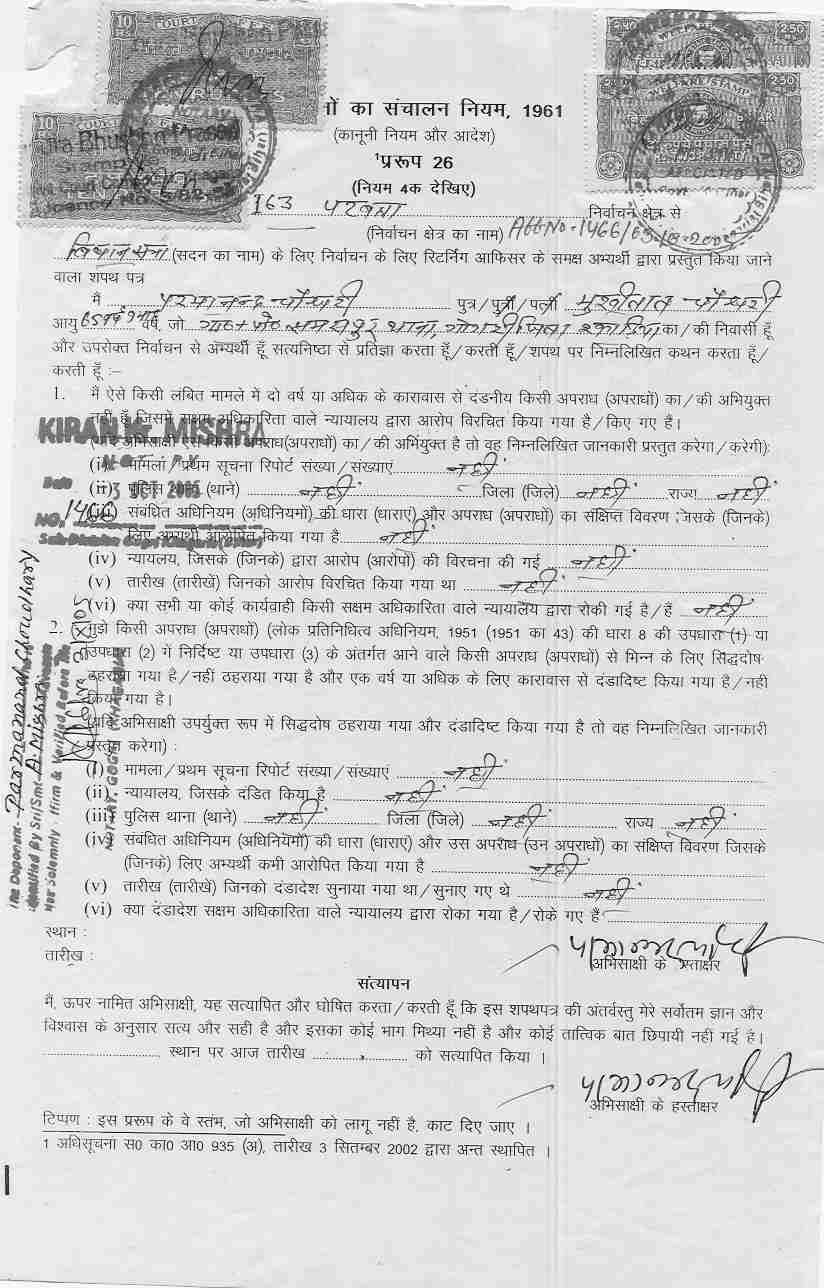 10
COURT FEE
INDIA
RUPEES
2.50
2.50
WELFARE STAMP
2.50
BIHAR
10
Jra Bhushan Prasad
Stamp
ों का संचालन नियम, 1961
(कानूनी नियम और आदेश)
¹प्ररूप 26
(नियम 4क देखिए)
163 परबत्ता निर्वाचन क्षेत्र से
(निर्वाचन क्षेत्र का नाम) Aff No-1466/
विधान सभा (सदन का नाम) के लिए निर्वाचन के लिए रिटर्निंग आफिसर के समक्ष अभ्यर्थी द्वारा प्रस्तुत किया जाने
वाला शपथ पत्र
मैं परमानन्द चौधरी पुत्र/पुत्री/पत्नी मुखीलाल चौधरी
आयु 65 वर्ष, जो ग्राम+पो० थाना, गोगरी जिला खगड़िया का/की निवासी हूँ
और उपरोक्त निर्वाचन से अभ्यर्थी हूँ सत्यनिष्ठा से प्रतिज्ञा करता हूँ/करती हूँ/शपथ पर निम्नलिखित कथन करता हूँ/
करती हूँ :–
1. मैं ऐसे किसी लंबित मामले में दो वर्ष या अधिक के कारावास से दंडनीय किसी अपराध (अपराधों) का/की अभियुक्त
नहीं हूँ जिसमें सक्षम अधिकारिता वाले न्यायालय द्वारा आरोप विरचित किया गया है/किए गए हैं।
KIRAN Kr. MISHRA
NOTARY
अभिसाक्षी ऐसे किसी अपराध(अपराधों) का/की अभियुक्त है तो वह निम्नलिखित जानकारी प्रस्तुत करेगा/करेगी):
(i) मामला/प्रथम सूचना रिपोर्ट संख्या/संख्याएं नहीं
Date 3 OCT 2005
(ii) पुलिस (थाने) नहीं जिला (जिले) नहीं राज्य नहीं
NO. 1466
(iii) संबंधित अधिनियम (अधिनियमों) की धारा (धाराएं) और अपराध (अपराधों) का संक्षिप्त विवरण जिसके (जिनके)
लिए अभ्यर्थी आरोपित किया गया है नहीं
(iv) न्यायलय, जिसके (जिनके) द्वारा आरोप (आरोपों) की विरचना की गई नहीं
(v) तारीख (तारीखें) जिनको आरोप विरचित किया गया था नहीं
(vi) क्या सभी या कोई कार्यवाही किसी सक्षम अधिकारिता वाले न्यायालय द्वारा रोकी गई है/हैं नहीं
2. मुझे किसी अपराध (अपराधों) (लोक प्रतिनिधित्व अधिनियम, 1951 (1951 का 43) की धारा 8 की उपधारा (1) या
उपधारा (2) में निर्दिष्ट या उपधारा (3) के अंतर्गत आने वाले किसी अपराध (अपराधों) से भिन्न के लिए सिद्धदोष
ठहराया गया है/नहीं ठहराया गया है और एक वर्ष या अधिक के लिए कारावास से दंडादिष्ट किया गया है/नहीं
किया गया है।
(यदि अभिसाक्षी उपर्युक्त रूप में सिद्धदोष ठहराया गया और दंडादिष्ट किया गया है तो वह निम्नलिखित जानकारी
प्रस्तुत करेगा) :
(i) मामला/प्रथम सूचना रिपोर्ट संख्या/संख्याएं नहीं
(ii) न्यायालय, जिसके दंडित किया है नहीं
(iii) पुलिस थाना (थाने) नहीं जिला (जिले) नहीं राज्य नहीं
(iv) संबंधित अधिनियम (अधिनियमों) की धारा (धाराएं) और उस अपराध (उन अपराधों) का संक्षिप्त विवरण जिसके
(जिनके) लिए अभ्यर्थी कभी आरोपित किया गया है नहीं
(v) तारीख (तारीखें) जिनको दंडादेश सुनाया गया था/सुनाए गए थे नहीं
(vi) क्या दंडादेश सक्षम अधिकारिता वाले न्यायालय द्वारा रोका गया है/रोके गए हैं
The Deponent Parmanand Choudhary
Identified By Sri/Smt A. Mishra
Has Solemnly Affirm & Verified Before Me
NOTARY, GOGRI (KHAGARIA)
स्थान :
तारीख :
अभिसाक्षी के हस्ताक्षर
सत्यापन
मैं, ऊपर नामित अभिसाक्षी, यह सत्यापित और घोषित करता/करती हूँ कि इस शपथपत्र की अंतर्वस्तु मेरे सर्वोतम ज्ञान और
विश्वास के अनुसार सत्य और सही है और इसका कोई भाग मिथ्या नहीं है और कोई तात्विक बात छिपायी नहीं गई है।
स्थान पर आज तारीख को सत्यापित किया ।
अभिसाक्षी के हस्ताक्षर
टिप्पण : इस प्ररूप के वे स्तंभ, जो अभिसाक्षी को लागू नहीं है, काट दिए जाए ।
1 अधिसूचना स0 का0 आ0 935 (अ), तारीख 3 सितम्बर 2002 द्वारा अन्त स्थापित ।